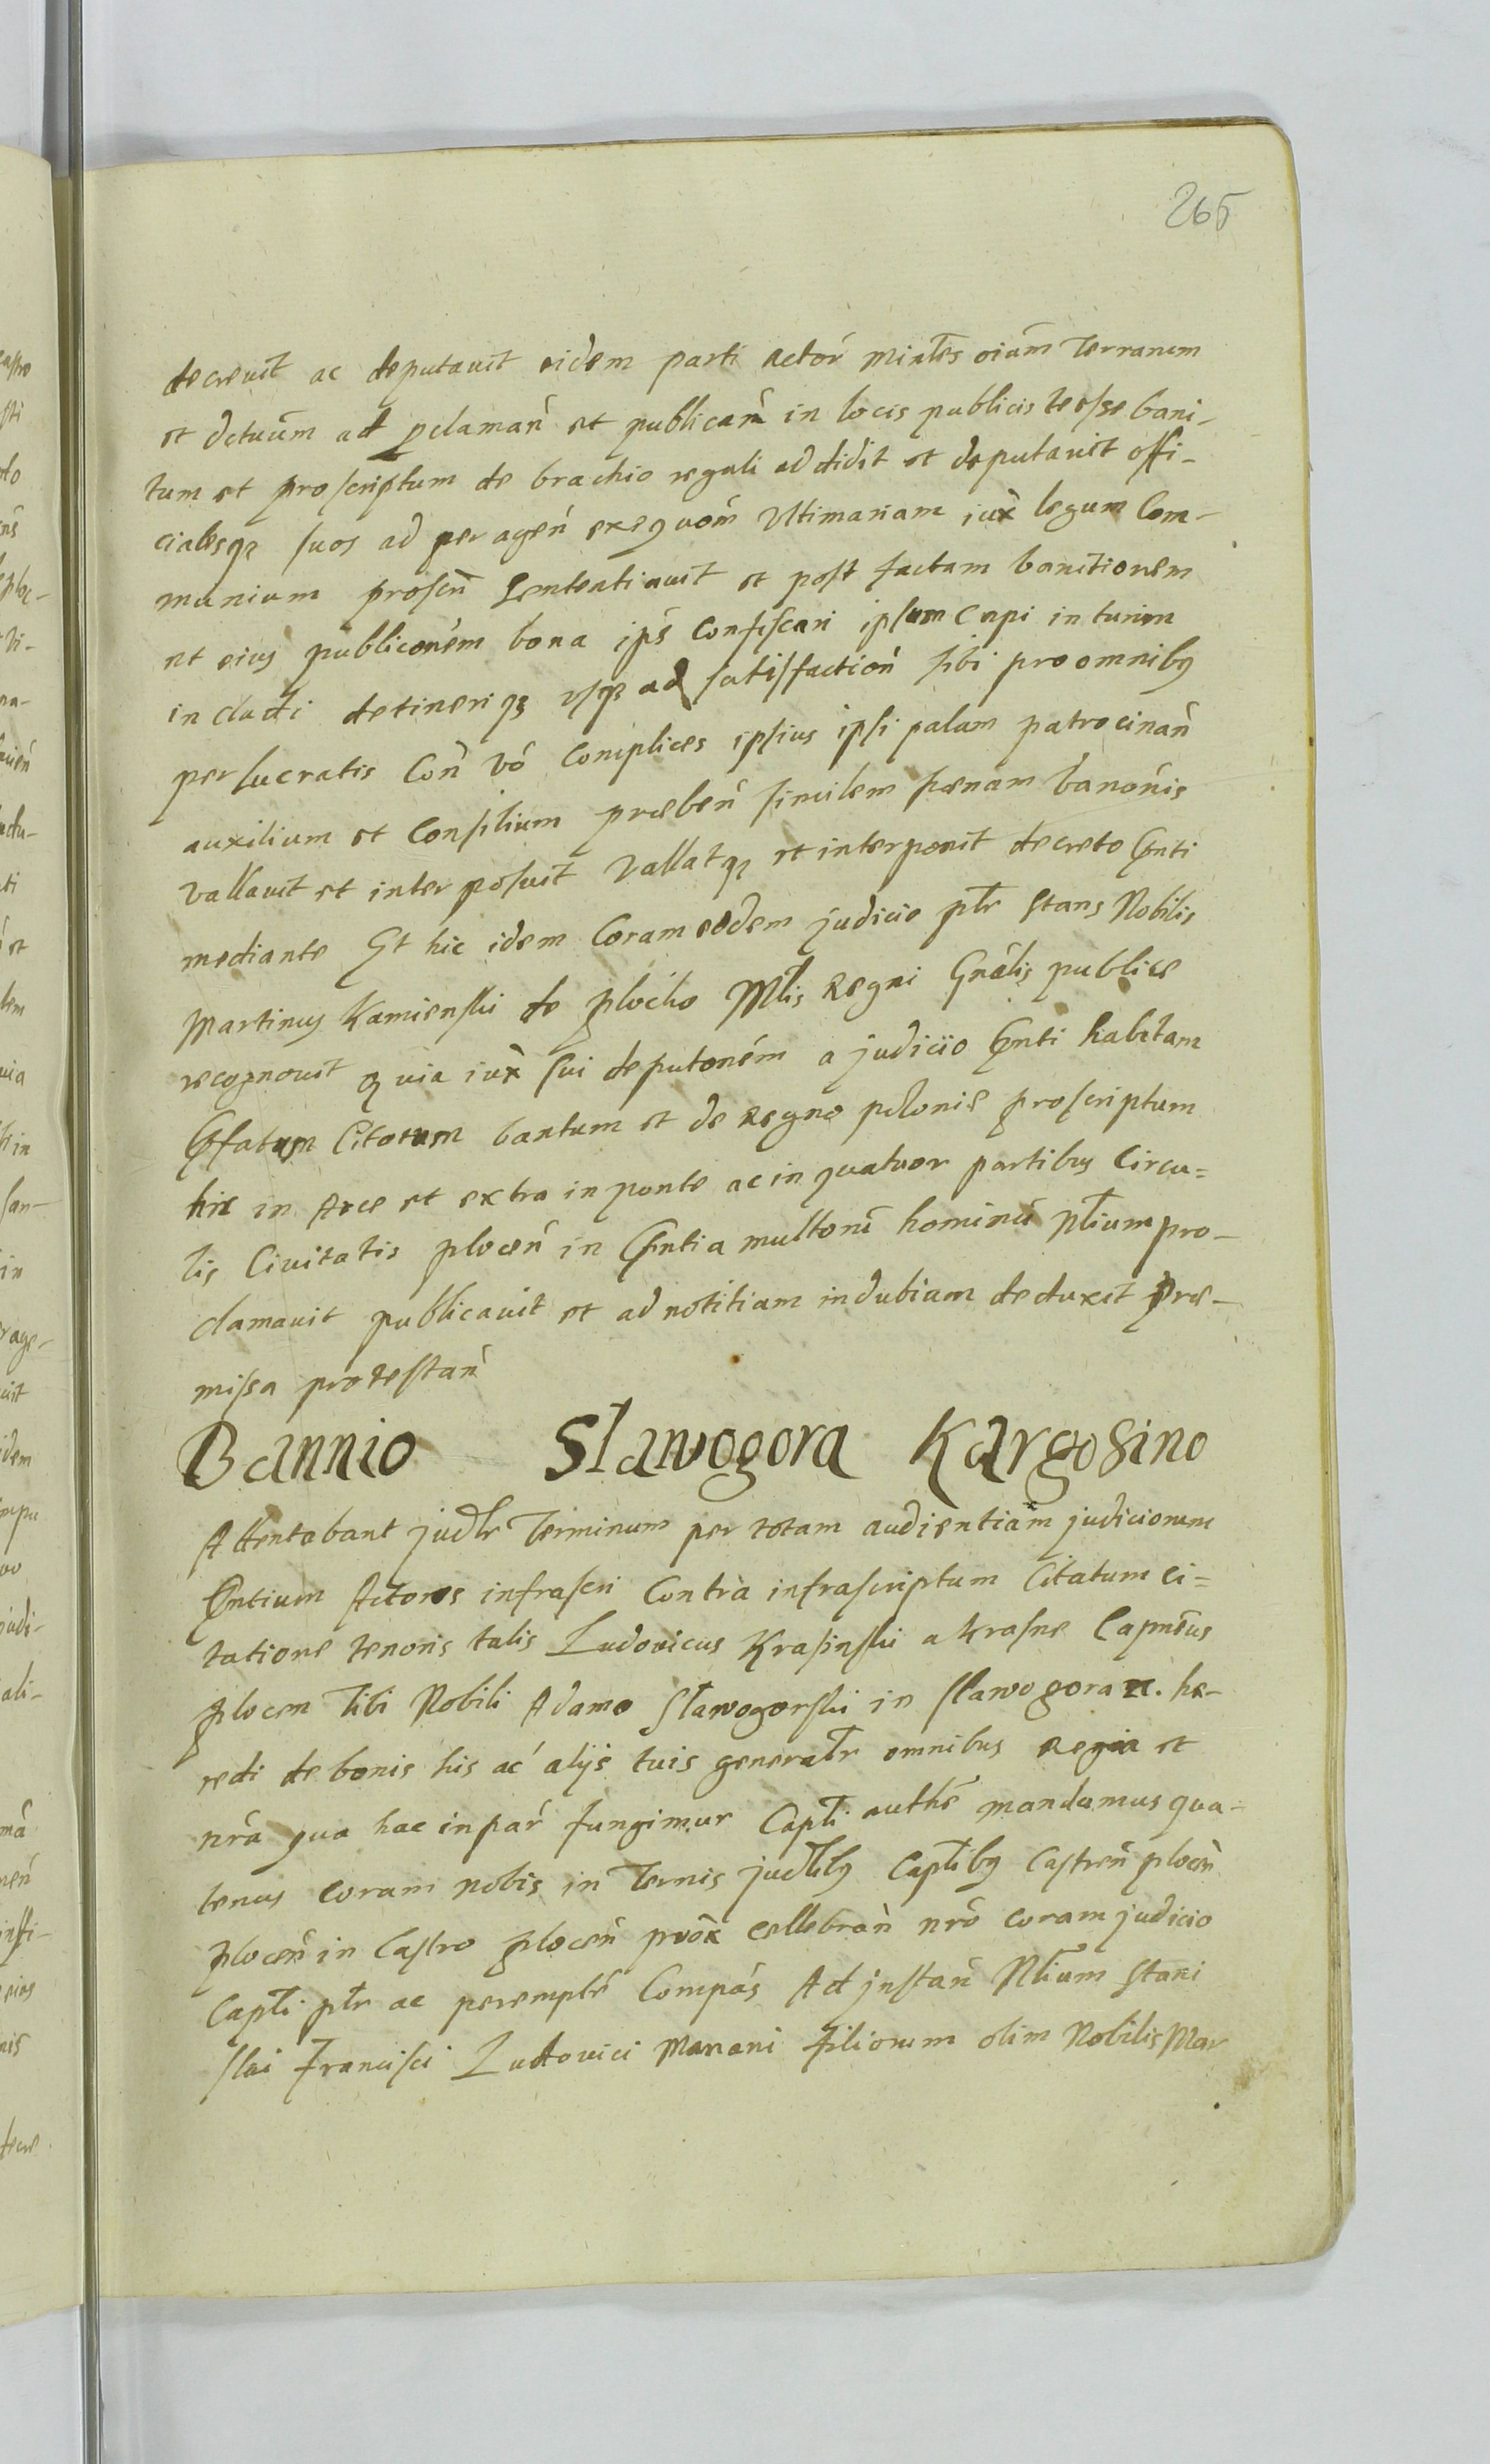 265
decrevit ac deputavit eidem parti Actor Mintles oium Terrarum
et dctuum ad pclaman et publican in locis publicis te esse bani-
tum et proscriptum de brachio regali addidit et deputavit offi-
cialesq suos ad peragen exeqvom Vltimariam iux legum Com-
munium proscri Sententiavit et post factam banitionem
et eius publiconem bona ips Confiscari ipsum Capi in turim
includi detineriq vsq ad satisfaction sibi pro omnibq
perlucratis Con vo Complices ipsius ipsi palam patrocinan
auxilium et Consilium præben similem pænam banonis
vallavit et interposuit Vallatq et interponit decreto Pnti
mediante Et hic idem Coram eodem judicio pltr Stans Nobilis
Martinus Kamienski de Plocko Mtlis Regni Gnalis publice
recognovit quia iux sui deputonem a judicio Pnti habitam
Pfatum Citatum banitum et de Regno Polonie proscriptum
hic in Arce et extra in ponte ac in quatuor partibus Circu=
lis Civitatis plocen in Pntia multoru hominu pltium pro-
clamavit publicavit et ad notitiam indubiam deduxit Præ-
missa protestan
Bannio Sławogora Kargosino
Attentabant judltr Terminum per totam audientiam judiciorum
Pntium Actores infrascri Contra infrascriptum Citatum ci=
tatione tenoris talis Ludovicus Krasinski a Krasne Capneus
Plocen Tibi Nobili Adamo Sławogorski in Sławogora n. hæ-
redi de bonis his ac alijs tuis generaltr omnibus Regia et
nra qua hac in par fungimur Capli authe mandamus qua-
tenus coram nobis in Ternis judltbq Capltibq Castren plocen
Plocen in Castro Plocen prox cellebran nro coram judicio
Capli pltr ac perempte Compas Ad jnstan Nltium Stani
slai Francisci Ludovici Mariani filiorum olim Nobilis Mar